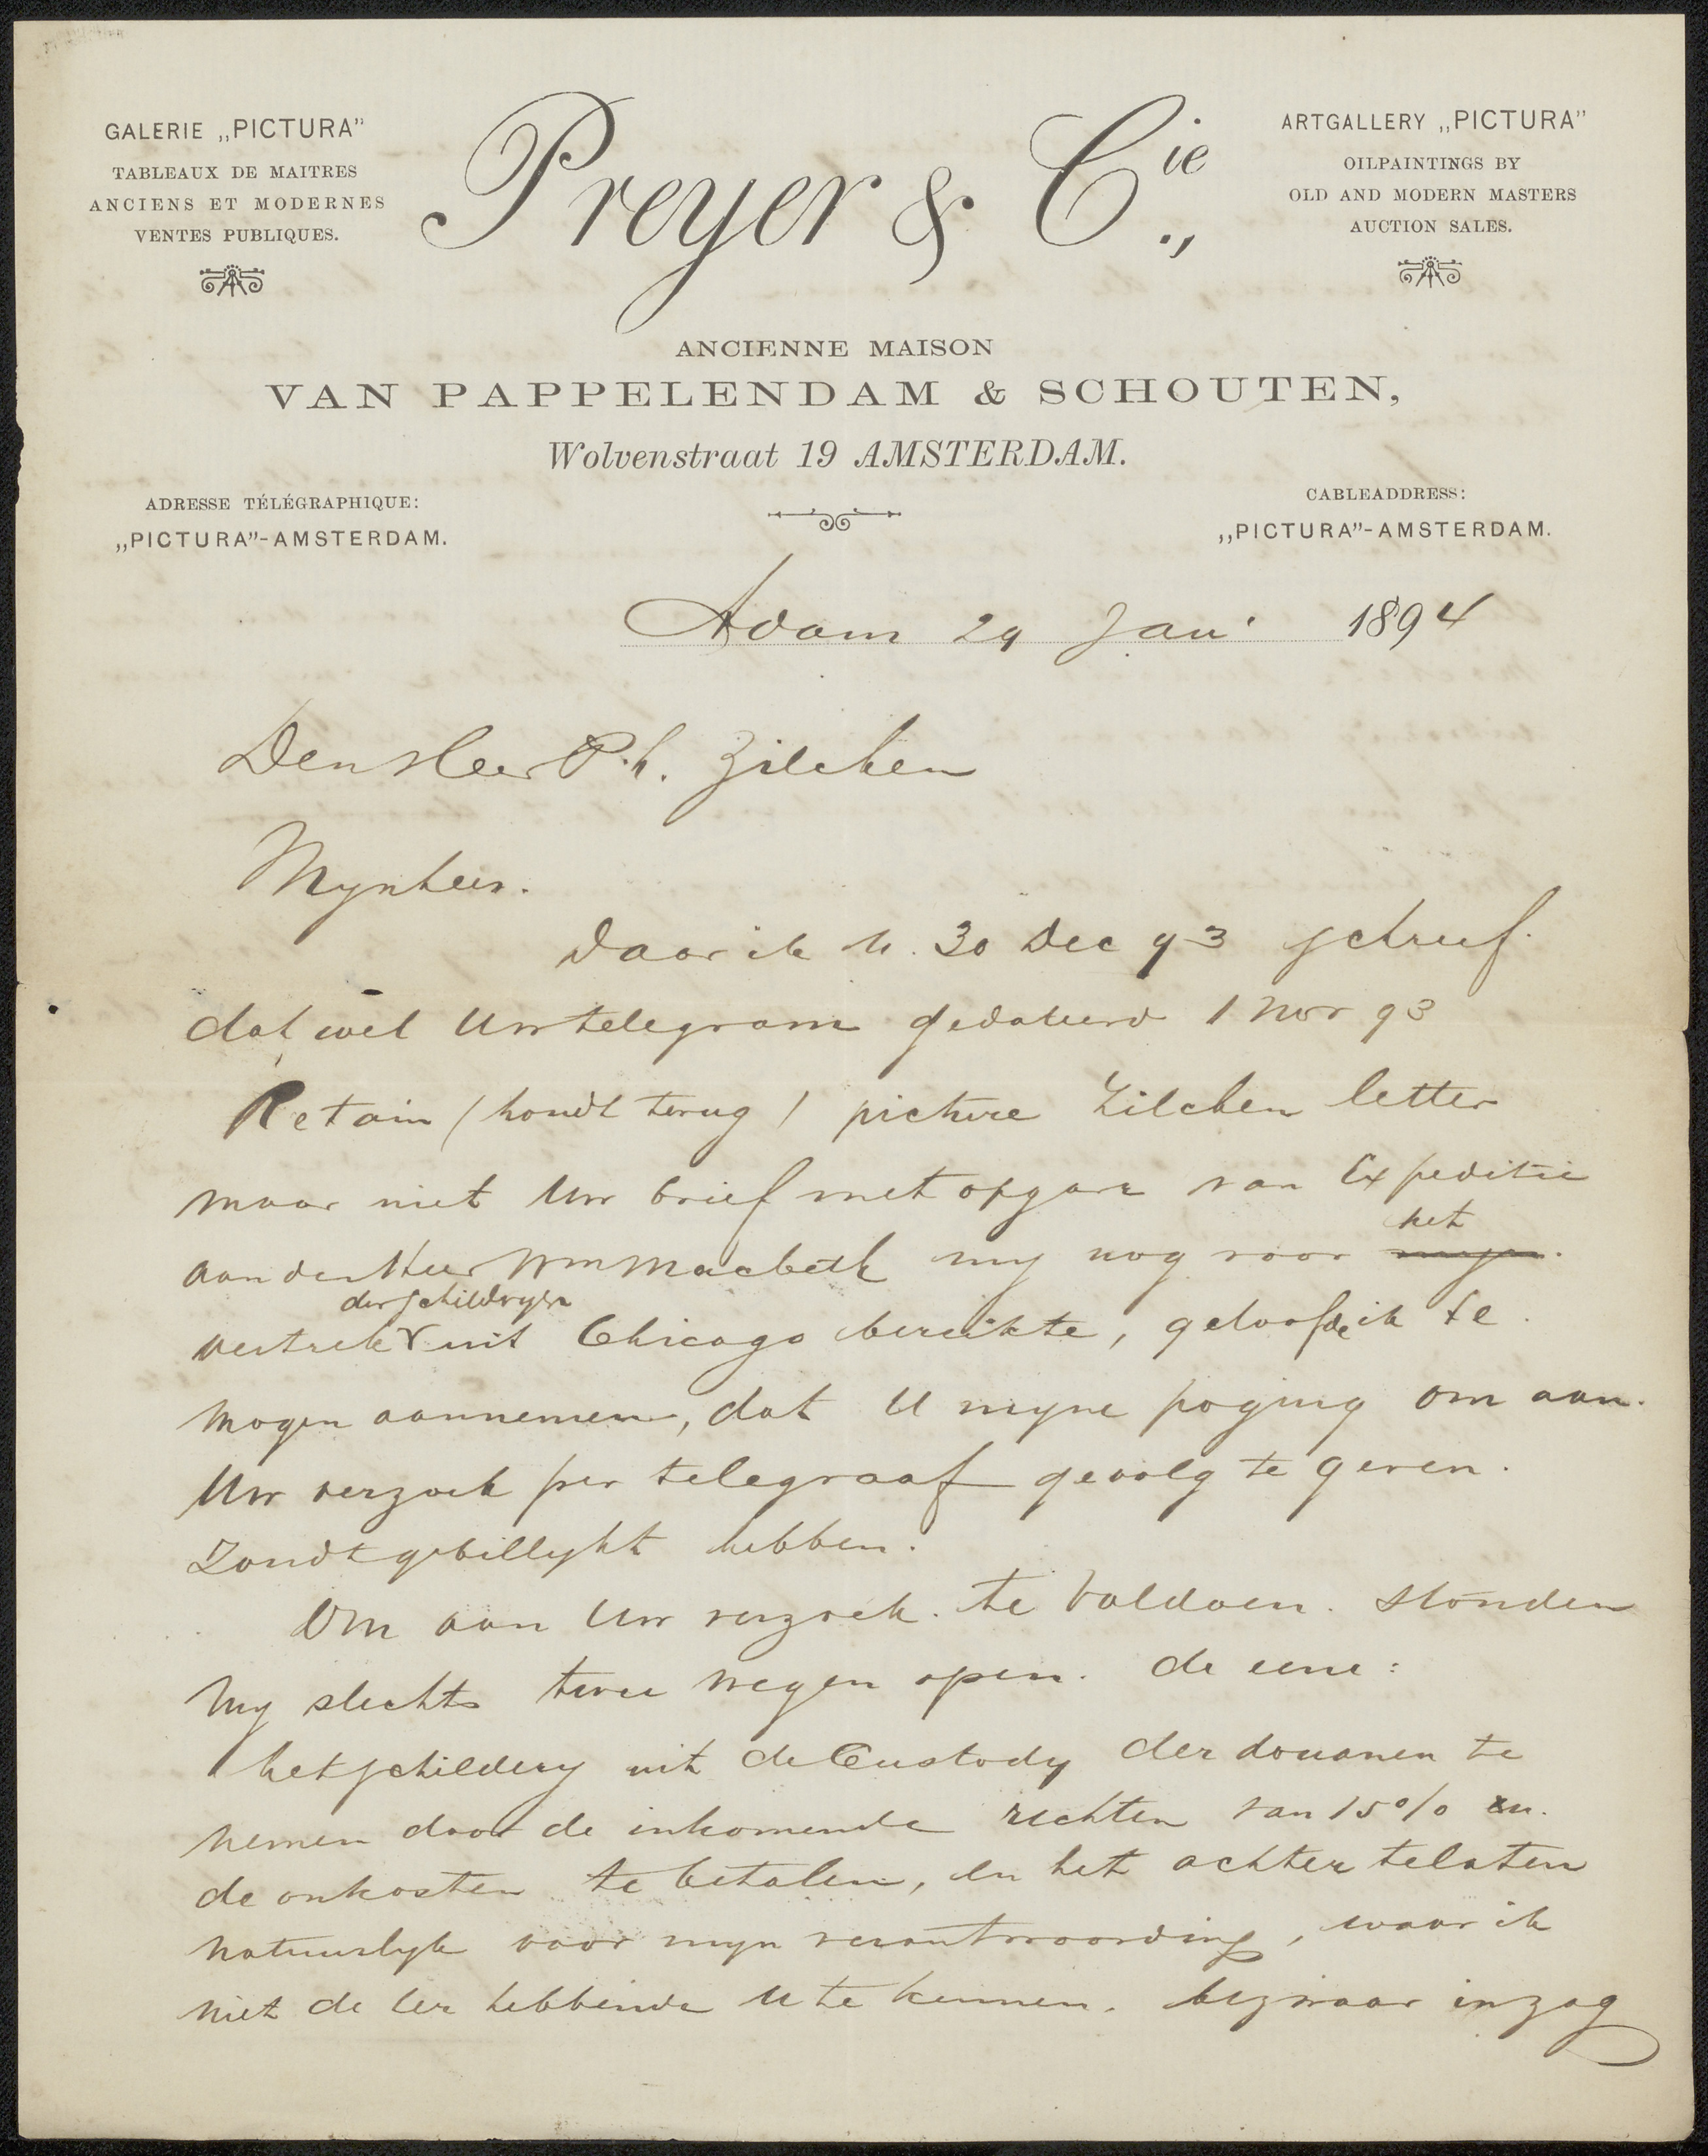 GALERIE „PICTURA”
TABLEAUX DE MAITRES
ANCIENS ET MODERNES
VENTES PUBLIQUES.
Preyer & Cie.,
ARTGALLERY „PICTURA”
OILPAINTINGS BY
OLD AND MODERN MASTERS
AUCTION SALES.
ANCIENNE MAISON
VAN PAPPELENDAM & SCHOUTEN,
Wolvenstraat 19 AMSTERDAM.
ADRESSE TÉLÉGRAPHIQUE:
„PICTURA”-AMSTERDAM.
CABLEADDRESS:
„PICTURA”-AMSTERDAM.
Adam 29 Jan 1894
Den Heer Ph. Zilcken
Mynheer.
Daar ik U. 30 Dec 93 schreef.
dat wel Uw telegram gedateerd 1 Nov 93
Retain (houdt terug) picture Zilcken letter
maar niet Uw brief met opgave van Expeditie
aan den Heer Wm Macbeth my nog voor het
vertrek der schilderyen uit Chicago bereikte, geloofde ik te.
mogen aannemen, dat U myne poging om aan.
Uw verzoek per telegraaf gevolg te geven.
Zoudt gebillykt hebben.
Om aan Uw verzoek. te voldoen. stonden
my slechts twee wegen open. de eene:
het schildery uit de Custody der douanen te
nemen door de inkomende rechten van 15% en.
de onkosten te betalen, en het achter te laten
natuurlyk voor myn verantwoording, waar ik
niet de eer hebbende U te kennen. bezwaar inzag